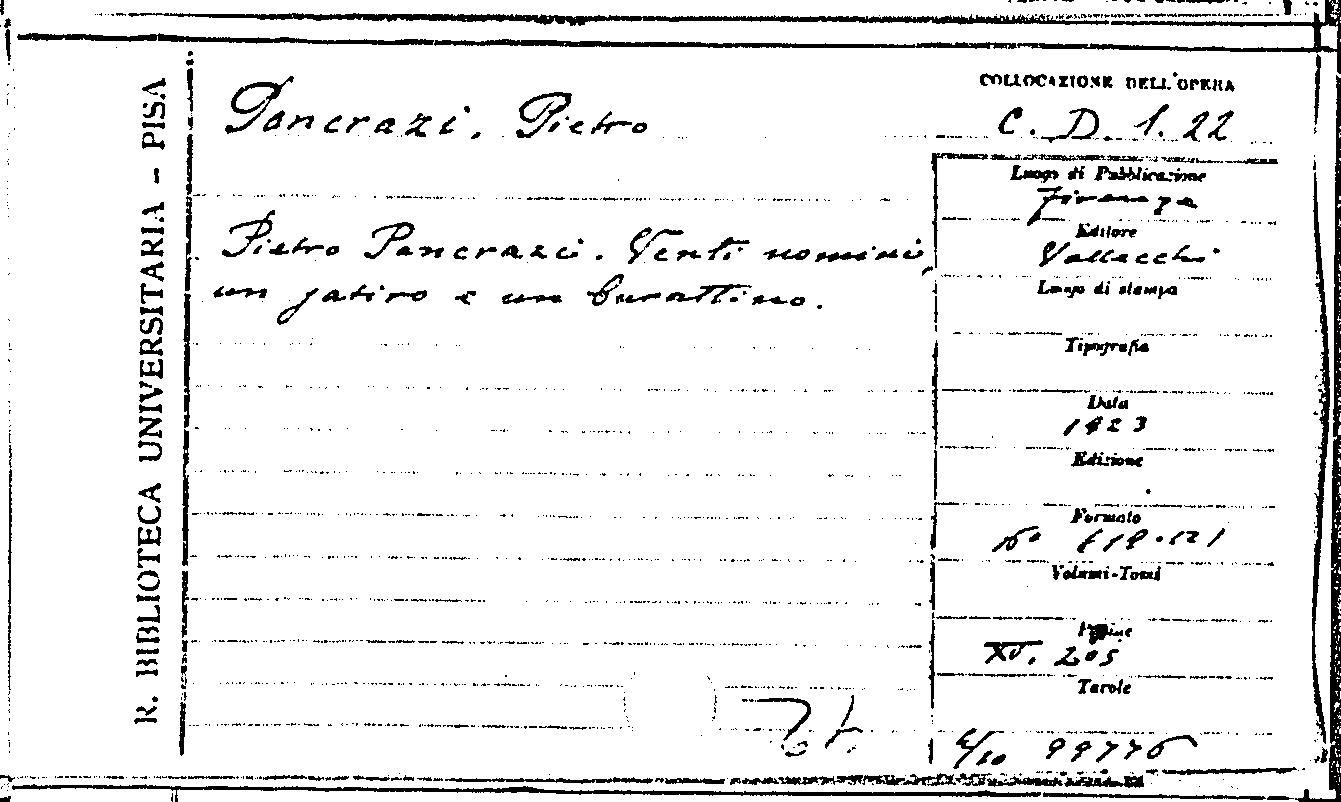 R. BIBLIOTECA UNIVERSITARIA – PISA
Pancrazi, Pietro
Pietro Pancrazi. Venti uomini,
un satiro e un burattino.
COLLOCAZIONE DELL'OPERA
C. D. 1. 22
Luogo di Pubblicazione
Firenze
Editore
Vallecchi
Luogo di stampa
Tipografia
Data
1923
Edizione
Formato
16°
Volumi-Tomi
Pagine
XV. 205
Tavole
99776